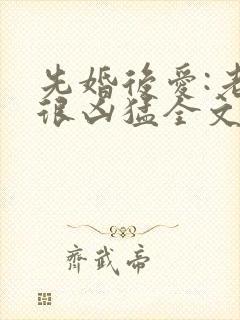 先婚後愛:老
很凶猛全文
齊武帝